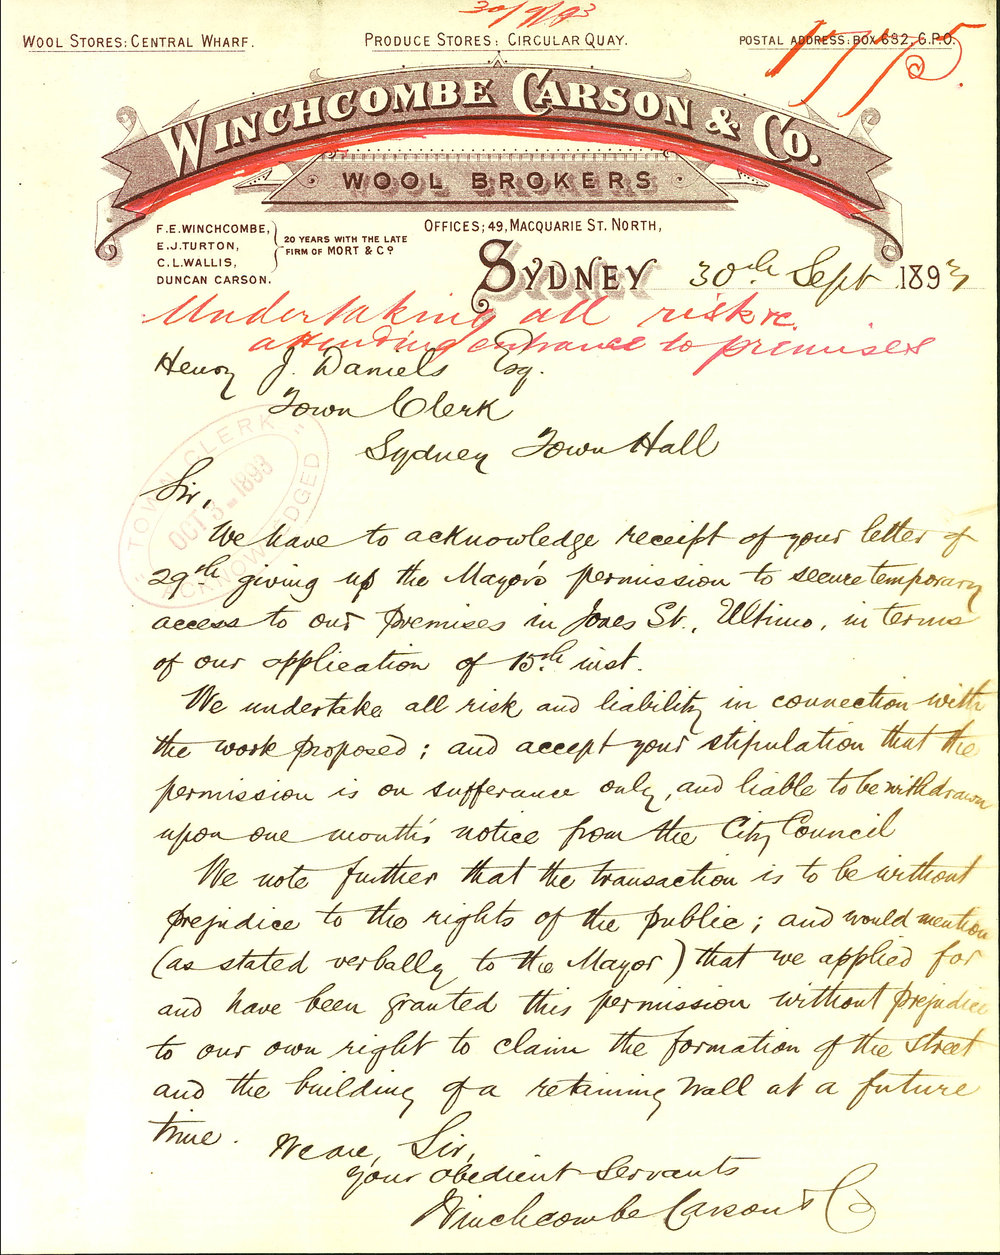 30/9/93
WOOL STORES: CENTRAL WHARF.
PRODUCE STORES: CIRCULAR QUAY.
POSTAL ADDRESS: BOX 632, G.P.O.
1775.
WINCHCOMBE CARSON & CO.
WOOL BROKERS
F.E. WINCHCOMBE,
E.J. TURTON,
C.L. WALLIS,
DUNCAN CARSON.
20 YEARS WITH THE LATE
FIRM OF MORT & CO
OFFICES; 49, MACQUARIE ST. NORTH,
SYDNEY 30th Sept 1893
Undertaking all risk re
attending entrance to premises
Henry J. Daniels Esq.
Town Clerk
Sydney Town Hall
"TOWN CLERK"
OCT 3 - 1893
ACKNOWLEDGED
Sir,
We have to acknowledge receipt of your letter of
29th giving us the Mayor's permission to secure temporary
access to our premises in Jones St., Ultimo, in terms
of our application of 15th inst.
We undertake all risk and liability in connection with
the work proposed; and accept your stipulation that the
permission is on sufferance only, and liable to be withdrawn
upon one month's notice from the City Council
We note further that the transaction is to be without
prejudice to the rights of the public; and would mention
(as stated verbally to the Mayor) that we applied for
and have been granted this permission without prejudice
to our own right to claim the formation of the street
and the building of a retaining wall at a future
time.
We are, Sir,
your obedient servants
Winchcombe Carson & Co